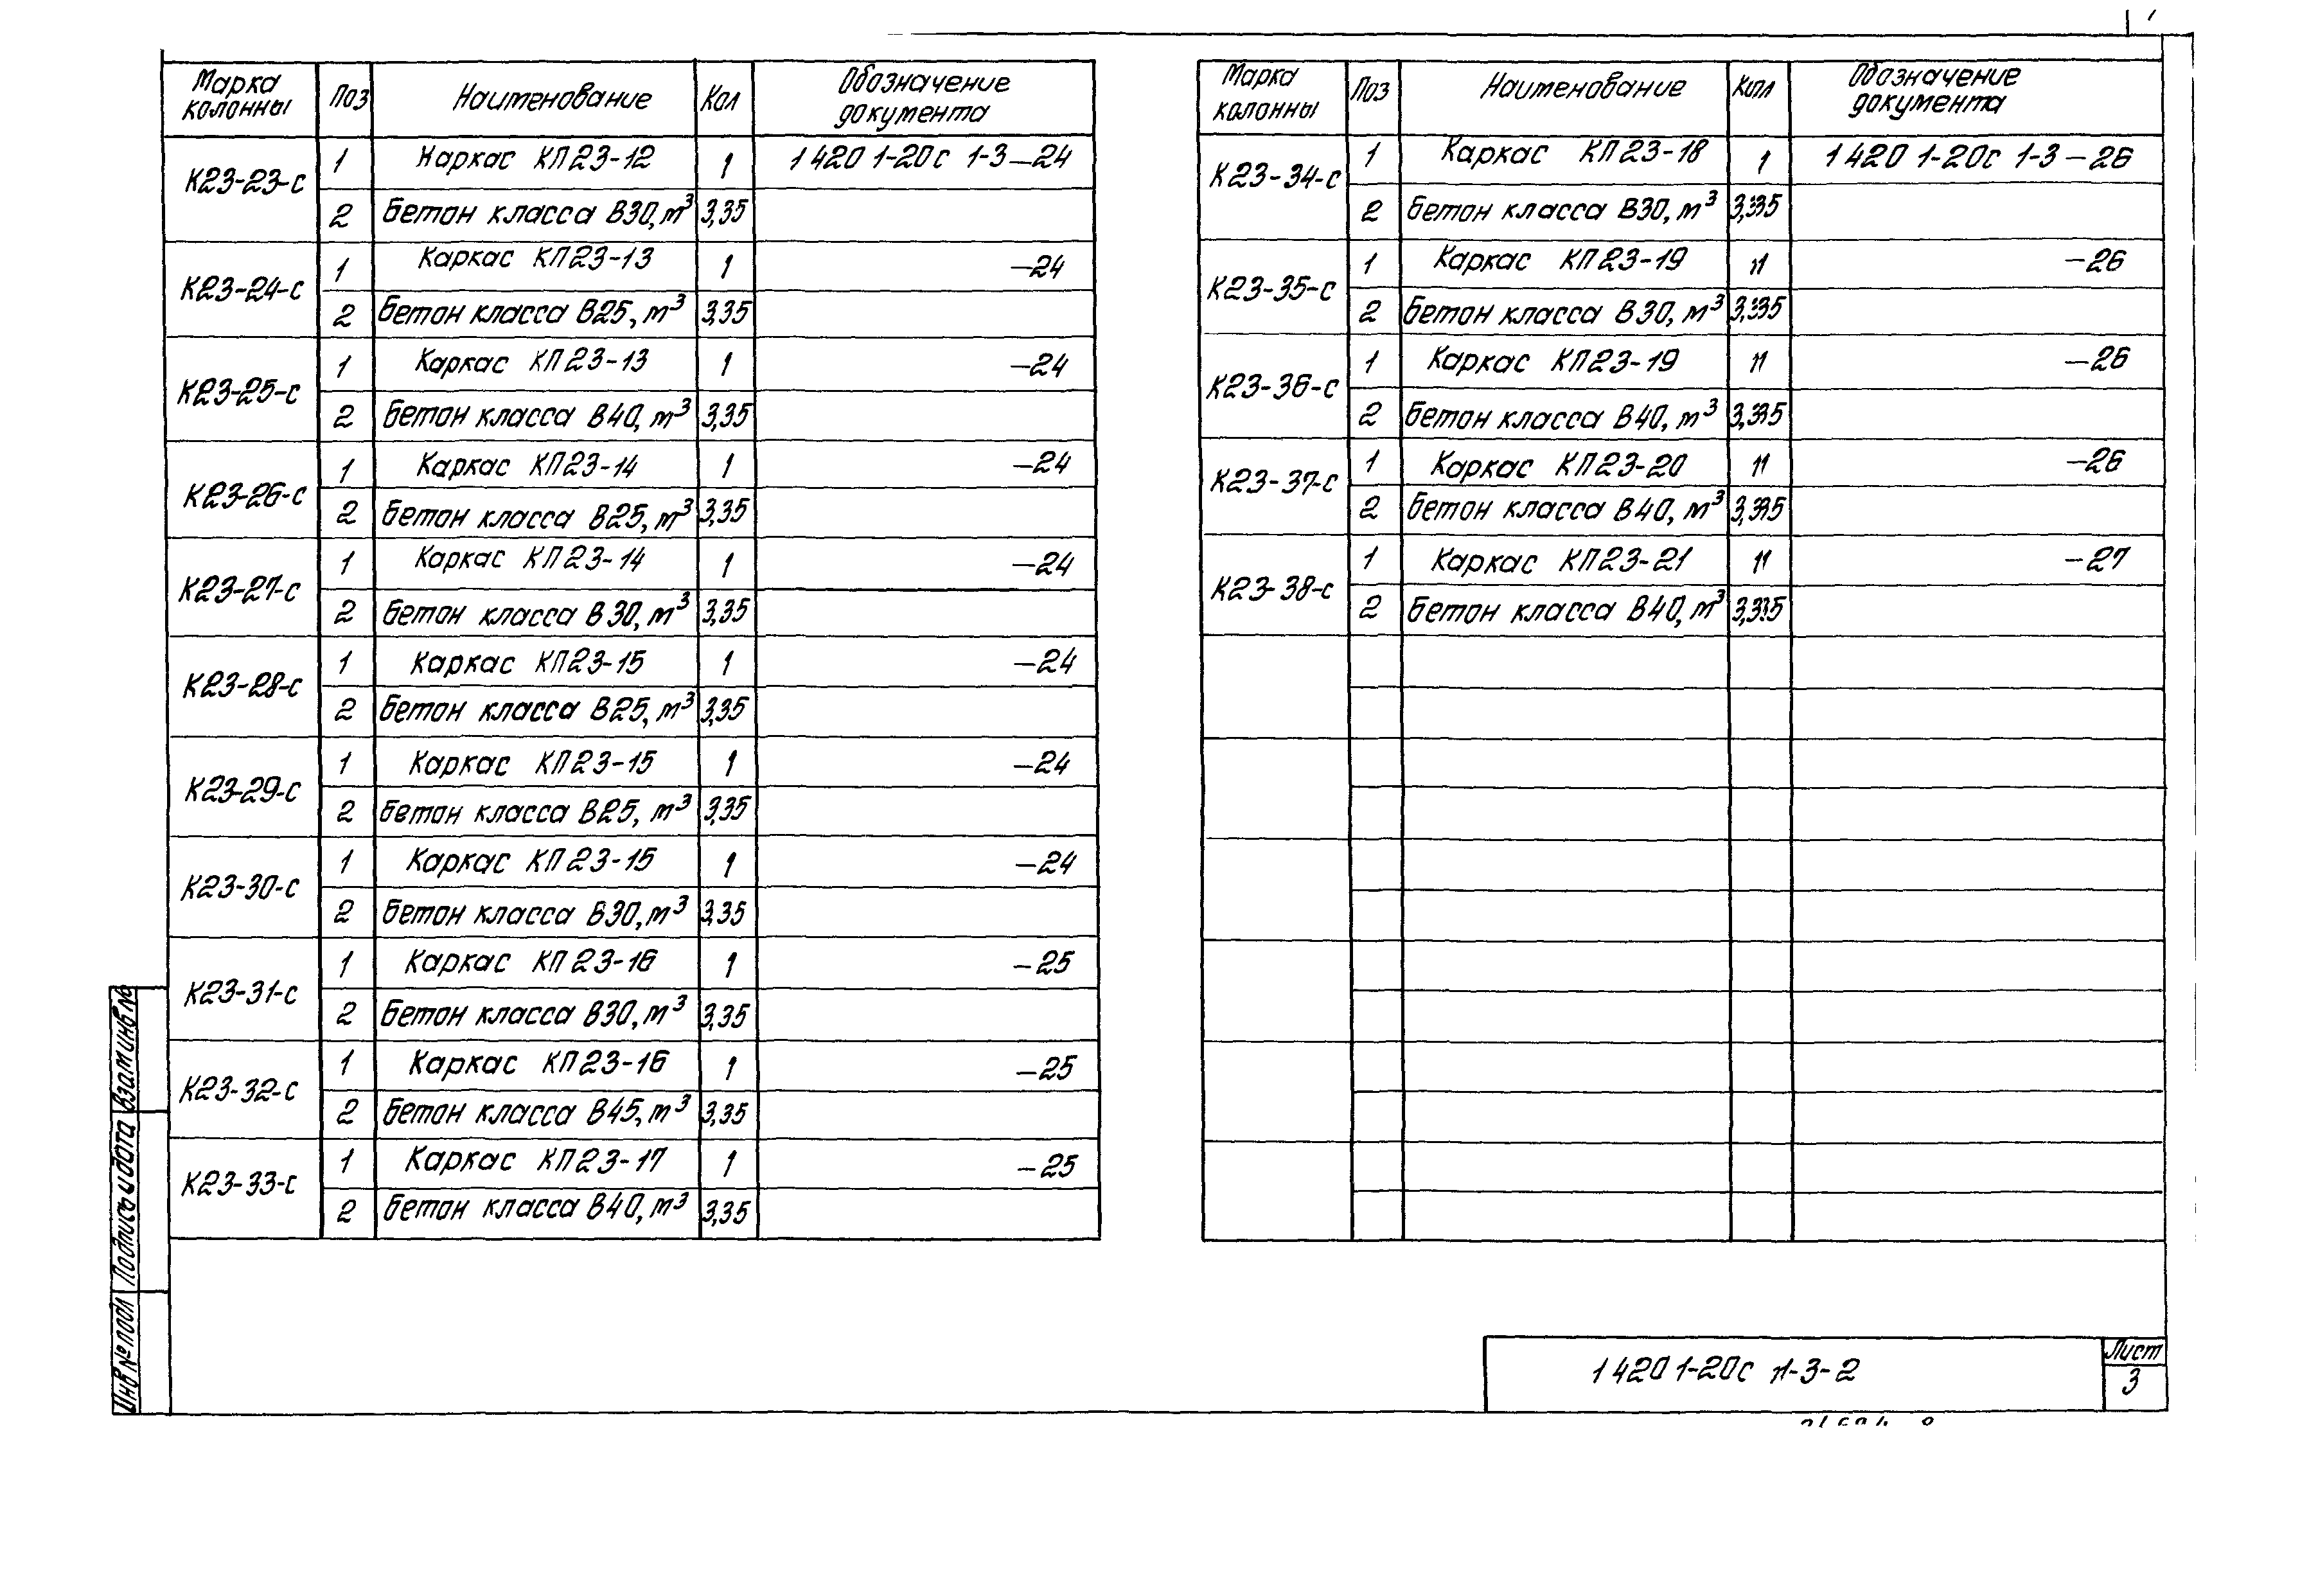 Марка колонны Поз Наименование Кол Обозначение документа
К23-23-с 1 Каркас КП23-12 1 1 420 1-20с 1-3-24
2 Бетон класса В30, м³ 3,35
К23-24-с 1 Каркас КП23-13 1 -24
2 Бетон класса В25, м³ 3,35
К23-25-с 1 Каркас КП23-13 1 -24
2 Бетон класса В40, м³ 3,35
К23-26-с 1 Каркас КП23-14 1 -24
2 Бетон класса В25, м³ 3,35
К23-27-с 1 Каркас КП23-14 1 -24
2 Бетон класса В30, м³ 3,35
К23-28-с 1 Каркас КП23-15 1 -24
2 Бетон класса В25, м³ 3,35
К23-29-с 1 Каркас КП23-15 1 -24
2 Бетон класса В25, м³ 3,35
К23-30-с 1 Каркас КП23-15 1 -24
2 Бетон класса В30, м³ 3,35
К23-31-с 1 Каркас КП23-16 1 -25
2 Бетон класса В30, м³ 3,35
К23-32-с 1 Каркас КП23-16 1 -25
2 Бетон класса В45, м³ 3,35
К23-33-с 1 Каркас КП23-17 1 -25
2 Бетон класса В40, м³ 3,35
Марка колонны Поз Наименование Кол Обозначение документа
К23-34-с 1 Каркас КП23-18 1 1 420 1-20с 1-3-26
2 Бетон класса В30, м³ 3,35
К23-35-с 1 Каркас КП23-19 1 -26
2 Бетон класса В30, м³ 3,35
К23-36-с 1 Каркас КП23-19 1 -26
2 Бетон класса В40, м³ 3,35
К23-37-с 1 Каркас КП23-20 1 -26
2 Бетон класса В40, м³ 3,35
К23-38-с 1 Каркас КП23-21 1 -27
2 Бетон класса В40, м³ 3,35
Инв № подл Подпись и дата Взам инв №
1 420 1-20с 1-3-2
Лист
3